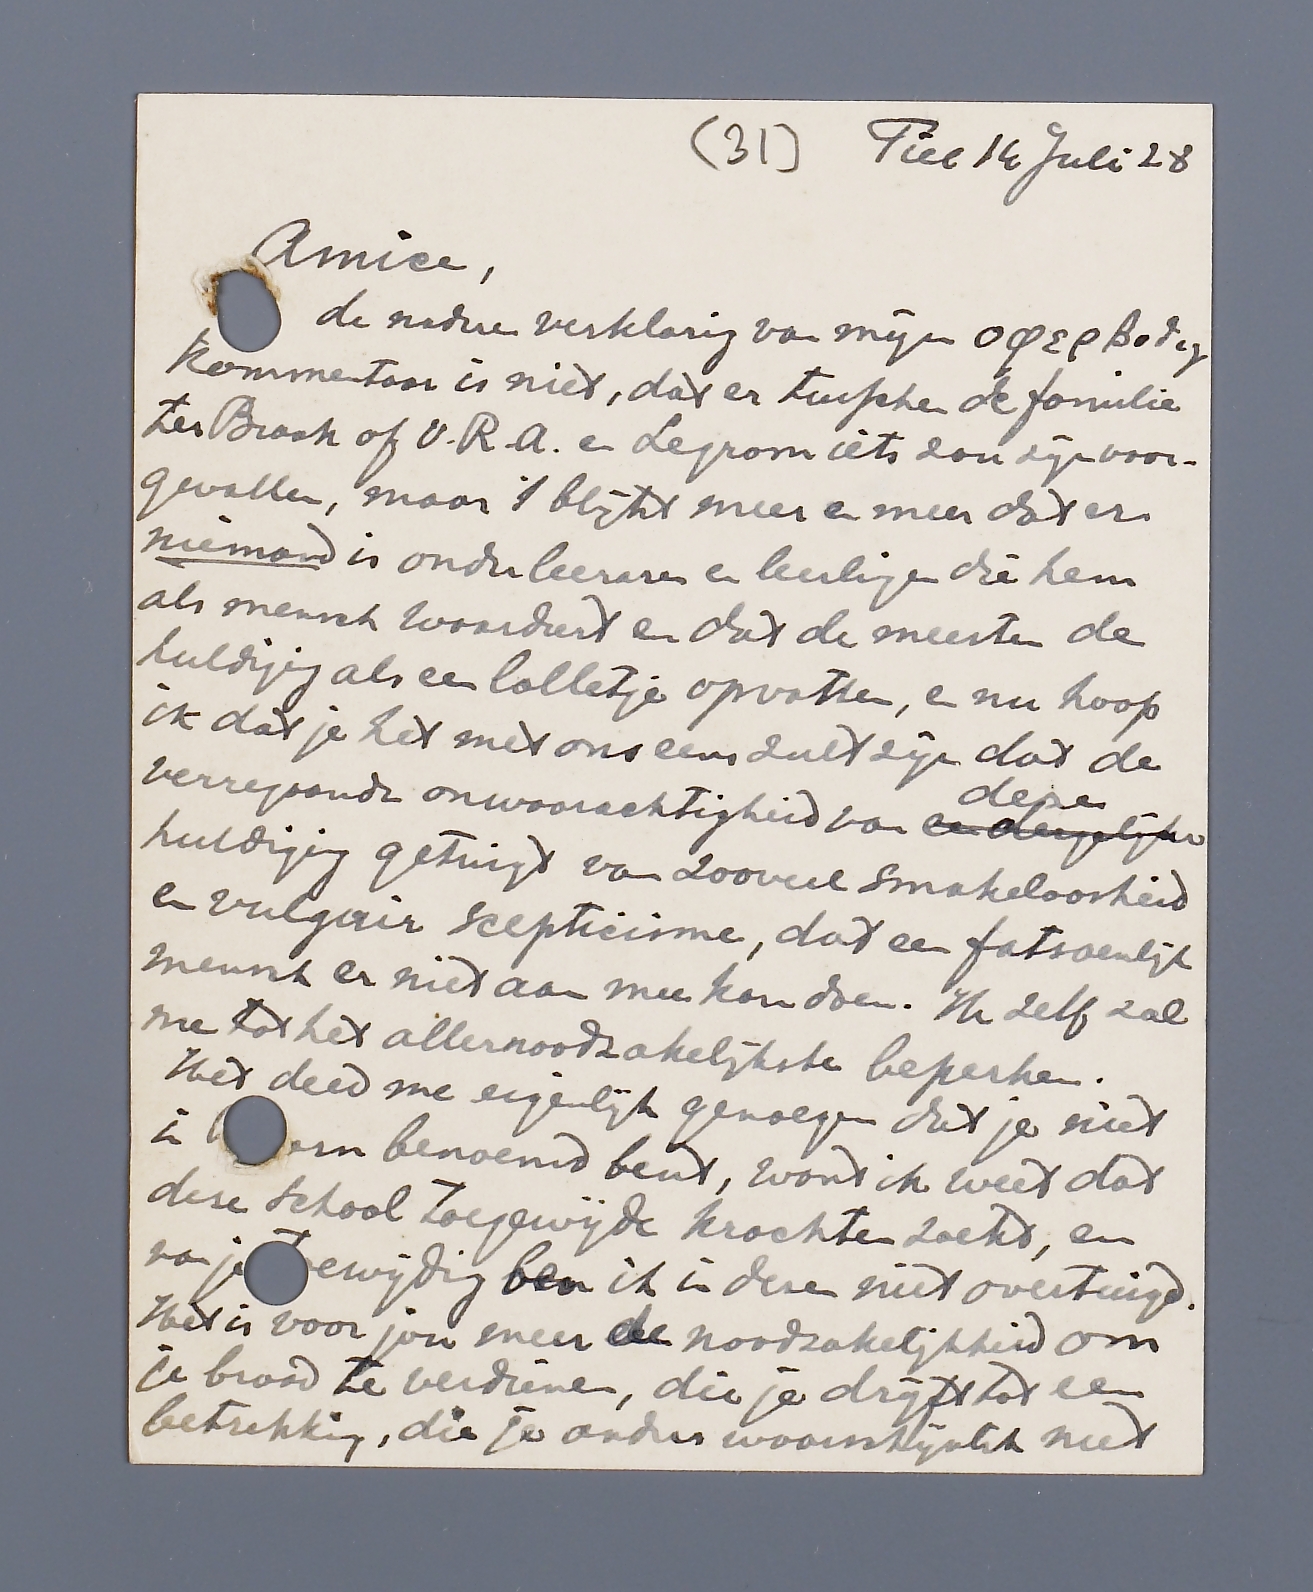 (31) Tiel 14 Juli 28
Amice,
de nadere verklaring van mijn
kommentaar is niet, dat er tusschen de familie
ter Braak of V.R.A. en Legrom iets zou zijn voor-
gevallen, maar 't blijkt meer en meer dat er
niemand is onder leeraren en leerlingen die hem
als mensch waardeert en dat de meesten de
huldiging als een lolletje opvatten, en nu hoop
ik dat je het met ons eens zult zijn dat de
verregaande onwaarachtigheid van een dergelijke deze
huldiging getuigt van zooveel smakeloosheid
en vulgair scepticisme, dat een fatsoenlijk
mensch er niet aan mee kan doen. Ik zelf zal
me tot het allernoodzakelijkste beperken.
Het deed me eigenlijk genoegen dat je niet
in benoemd bent, want ik weet dat
deze school toegewijde krachten zoekt, en
van je ewijding ben ik in dezen niet overtuigd.
Het is voor jou meer de noodzakelijkheid om
je brood te verdienen, die je drijft tot een
betrekking, die je anders waarschijnlijk niet